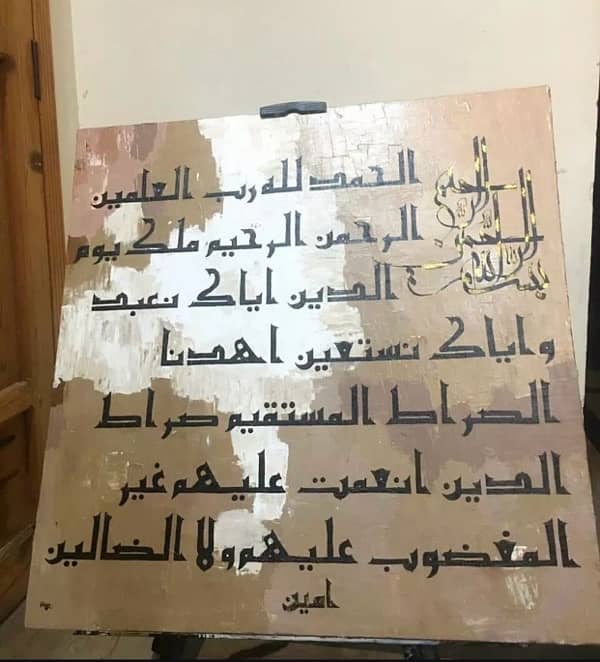 بسم الله الرحمن الرحيم
الحمد لله رب العلمين
الرحمن الرحيم ملك يوم
الدين اياك نعبد
واياك نستعين اهدنا
الصراط المستقيم صراط
الدين انعمت عليهم غير
المغضوب عليهم ولا الضالين
امين